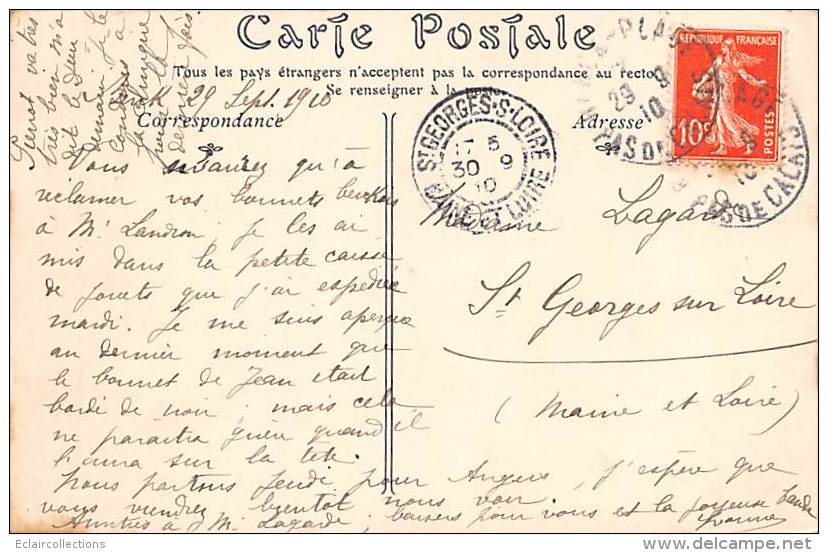 Carte Postale
Tous les pays étrangers n'acceptent pas la correspondance au recto
Se renseigner à la poste
Correspondance
Adresse
29 Sept. 1910
Vous n'aurez qu'à
réclamer vos bonnets berckois
à Mr Landron. Je les ai
mis dans la petite caisse
de jouets que j'ai expédiée
mardi. Je me suis aperçue
au dernier moment que
le bonnet de Jean était
bordé de noir, mais cela
ne paraitra guère quand il
l'aura sur la tête.
Nous partons Jeudi pour Angers, j'espère que
vous viendrez bientôt nous voir.
Amitiés à Mr Lagarde, baisers pour vous et la joyeuse bande
Yvonne
Pierrot va très
très bien m'a
dit le
demain je le
conduis à
la
pour la
dernière fois.
Madame Lagarde
St Georges sur Loire
(Maine et Loire)
ST GEORGES-S-LOIRE
17 5
30 9
10
MAINE ET LOIRE
PLAGE
29 9
10
PAS DE CALAIS
REPUBLIQUE FRANÇAISE
10c
POSTES
Eclaircollections
delcampe.net